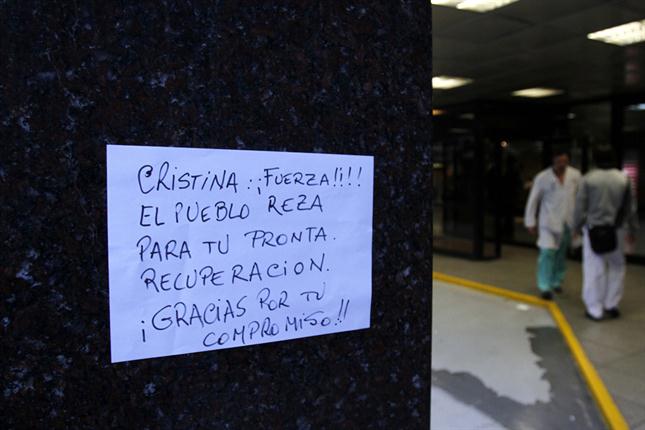 CRISTINA: ¡¡FUERZA!!!!
EL PUEBLO REZA
PARA TU PRONTA.
RECUPERACION.
¡GRACIAS POR TU
COMPROMISO!!